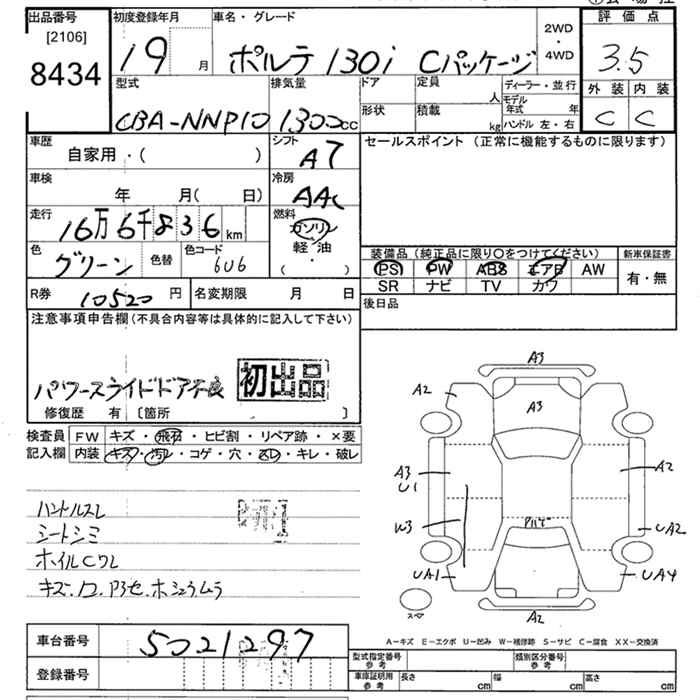 出品番号 初度登録年月 車名・グレード 2WD・4WD 評価点
[2106]
8434 19 月 ポルテ 130i Cパッケージ 3.5
型式 排気量 ドア 定員 人 ディーラー・並行 外装 内装
CBA-NNP10 1300cc 形状 積載 kg モデル年式 年 ハンドル 左・右 C C
車歴 自家用・( ) シフト AT セールスポイント (正常に機能するものに限ります)
車検 年 月( 日) 冷房 AAC
走行 16万6千836km 燃料 ガソリン
軽油
・( )
色 グリーン 色替 色コード 6U6
装備品 (純正品に限り〇をつけてください) 新車保証書
PS PW ABS エアB AW 有・無
SR ナビ TV カワ
R券 10520円 名変期限 月 日 後日品
注意事項申告欄(不具合内容等は具体的に記入して下さい)
パワースライドドア不良 初出品
修復歴 有 〔箇所 〕
検査員 FW キズ・飛石・ヒビ割・リペア跡・×要
記入欄 内装 キズ・汚レ・コゲ・穴・スレ・キレ・破レ
ハンドルスレ
シートシミ
ホイルCワレ
A3
A2
A3
A3
U1
A2
W3
UA2
UA1
UA4
スペア
A2
A-キズ E-エクボ U-凹み W-補修跡 S-サビ C-腐食 XX-交換済
車台番号 5021297
型式指定番号 参考 類別区分番号 参考
登録番号 車庫証明用 参考 長さ cm 幅 cm 高さ cm